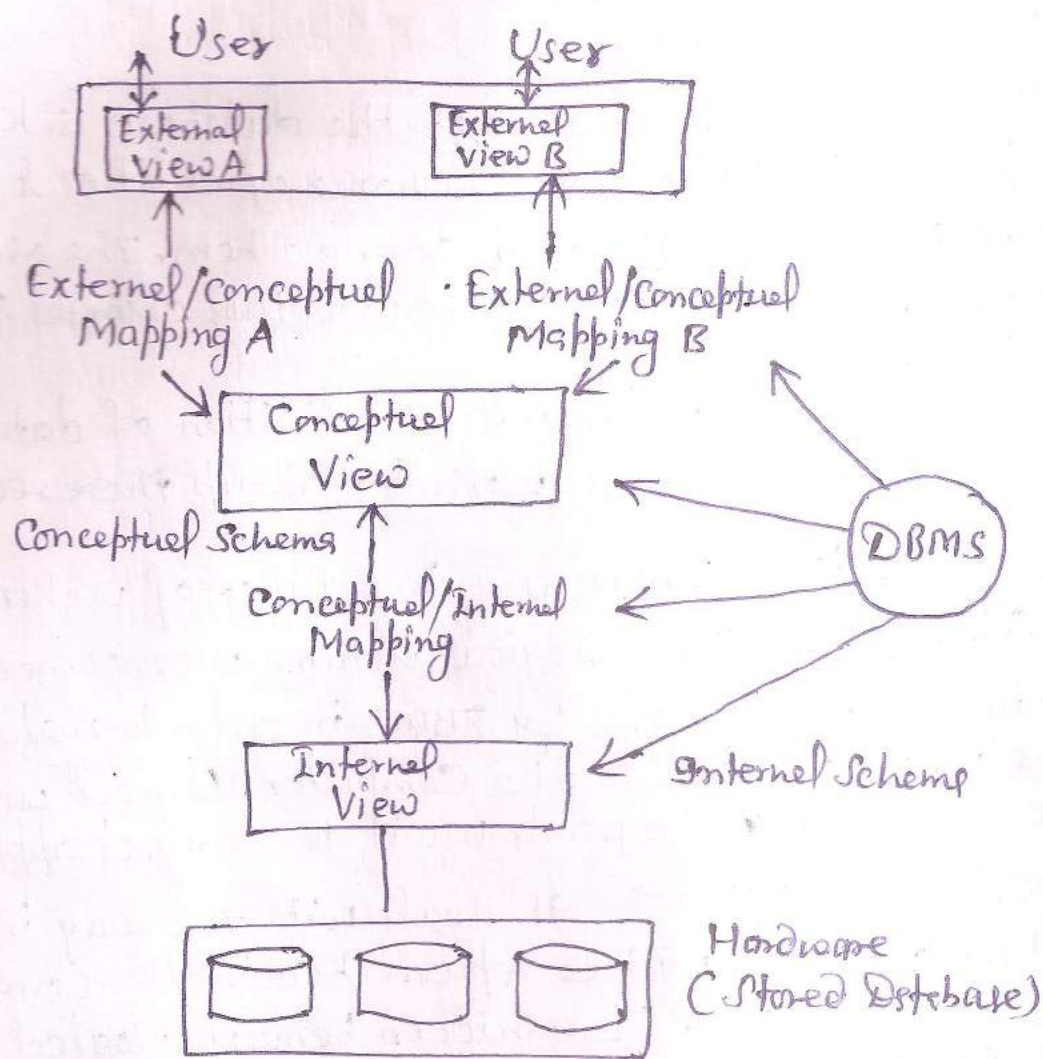 User
User
External
View A
External
View B
External/Conceptual
Mapping A
External/Conceptual
Mapping B
Conceptual
View
Conceptual Schema
DBMS
Conceptual/Internal
Mapping
Internal
View
Internal Schema
Hardware
(Stored Database)